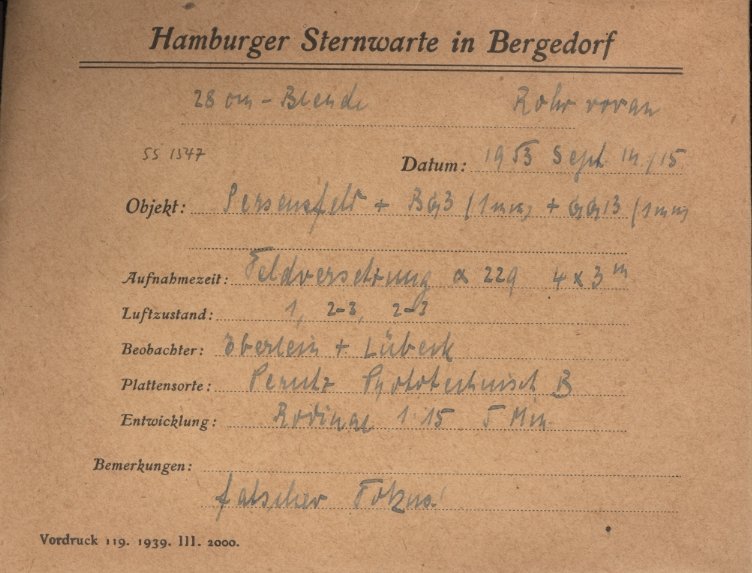 Hamburger Sternwarte in Bergedorf
28 cm - Blende Rohr voran
SS 1347
Datum: 1953 Sept 14/15
Objekt: Perseusfeld + BG3 (1mm) + GG13 (1mm)
Aufnahmezeit: Feldversetzung α 229 4 x 3 m
Luftzustand: 1, 2-3, 2-3
Beobachter: Eberlein + Lübeck
Plattensorte: Perutz Phototechnisch B
Entwicklung: Rodinal 1:15 5 Min
Bemerkungen:
falscher Fokus!
Vordruck 119. 1939. III. 2000.